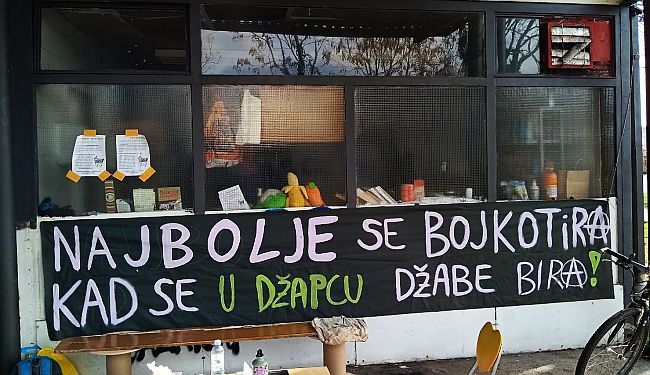 NAJBOLJE SE BOJKOTIRA
KAD SE U DŽAPCU DŽABE BIRA!